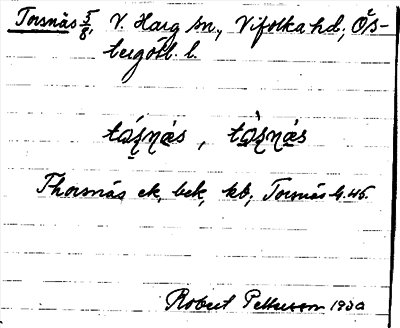 Torsnäs 5/8, V. Harg sn., Vifolka hd., Ös-
tergötl. l.
tásnäs, tàsnäs
Thorsnäs ek, bek, kb; Torsnäs G. 45.
Robert Petterson 1930